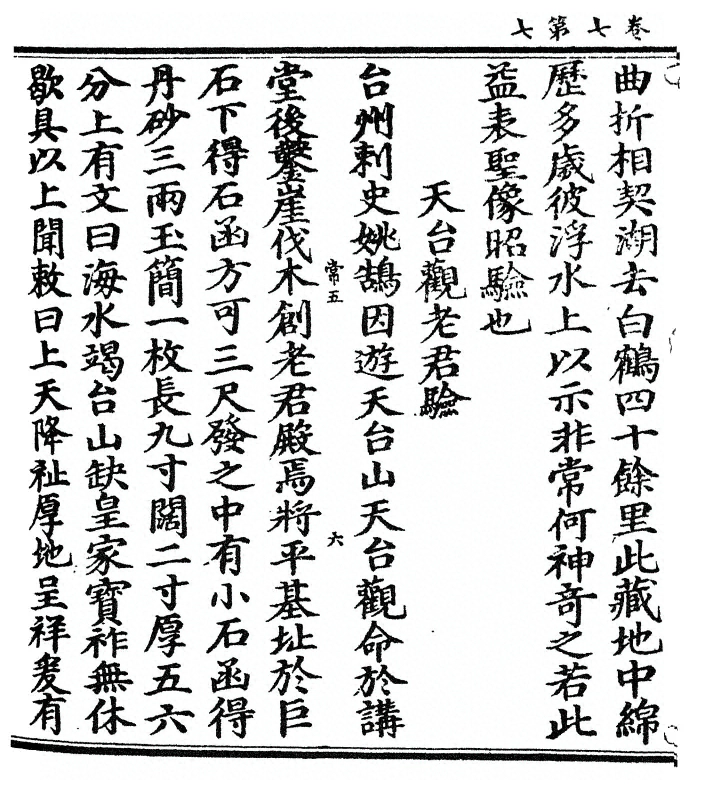 卷七第七
曲折相契湖去白鶴四十餘里此藏地中綿
歷多歲彼浮水上以示非常何神奇之若此
益表聖像昭驗也
天台觀老君驗
台州刺史姚鵠因遊天台山天台觀命於講
常五
六
堂後鑿崖伐木創老君殿焉將平基址於巨
石下得石函方可三尺發之中有小石函得
丹砂三兩玉簡一枚長九寸闊二寸厚五六
分上有文曰海水竭台山缺皇家寶祚無休
歇具以上聞敕曰上天降祉厚地呈祥爰有